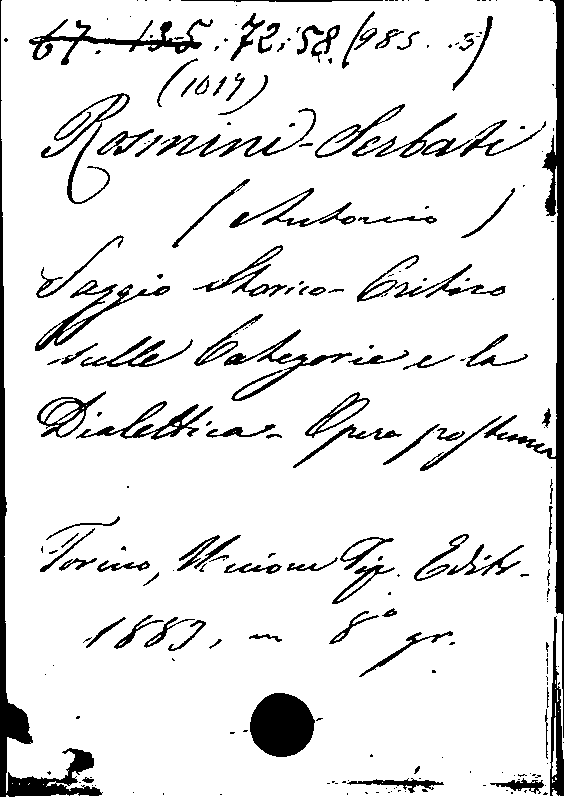 67. 135. 72. 58. (985. .5)
(1017)
Rosmini-Serbati
(Antonio)
Saggio Storico-Critico
sulle Categorie e la
Dialettica. Opera postuma
Torino, Unione Tip. Edit.
1883, in 8° gr.